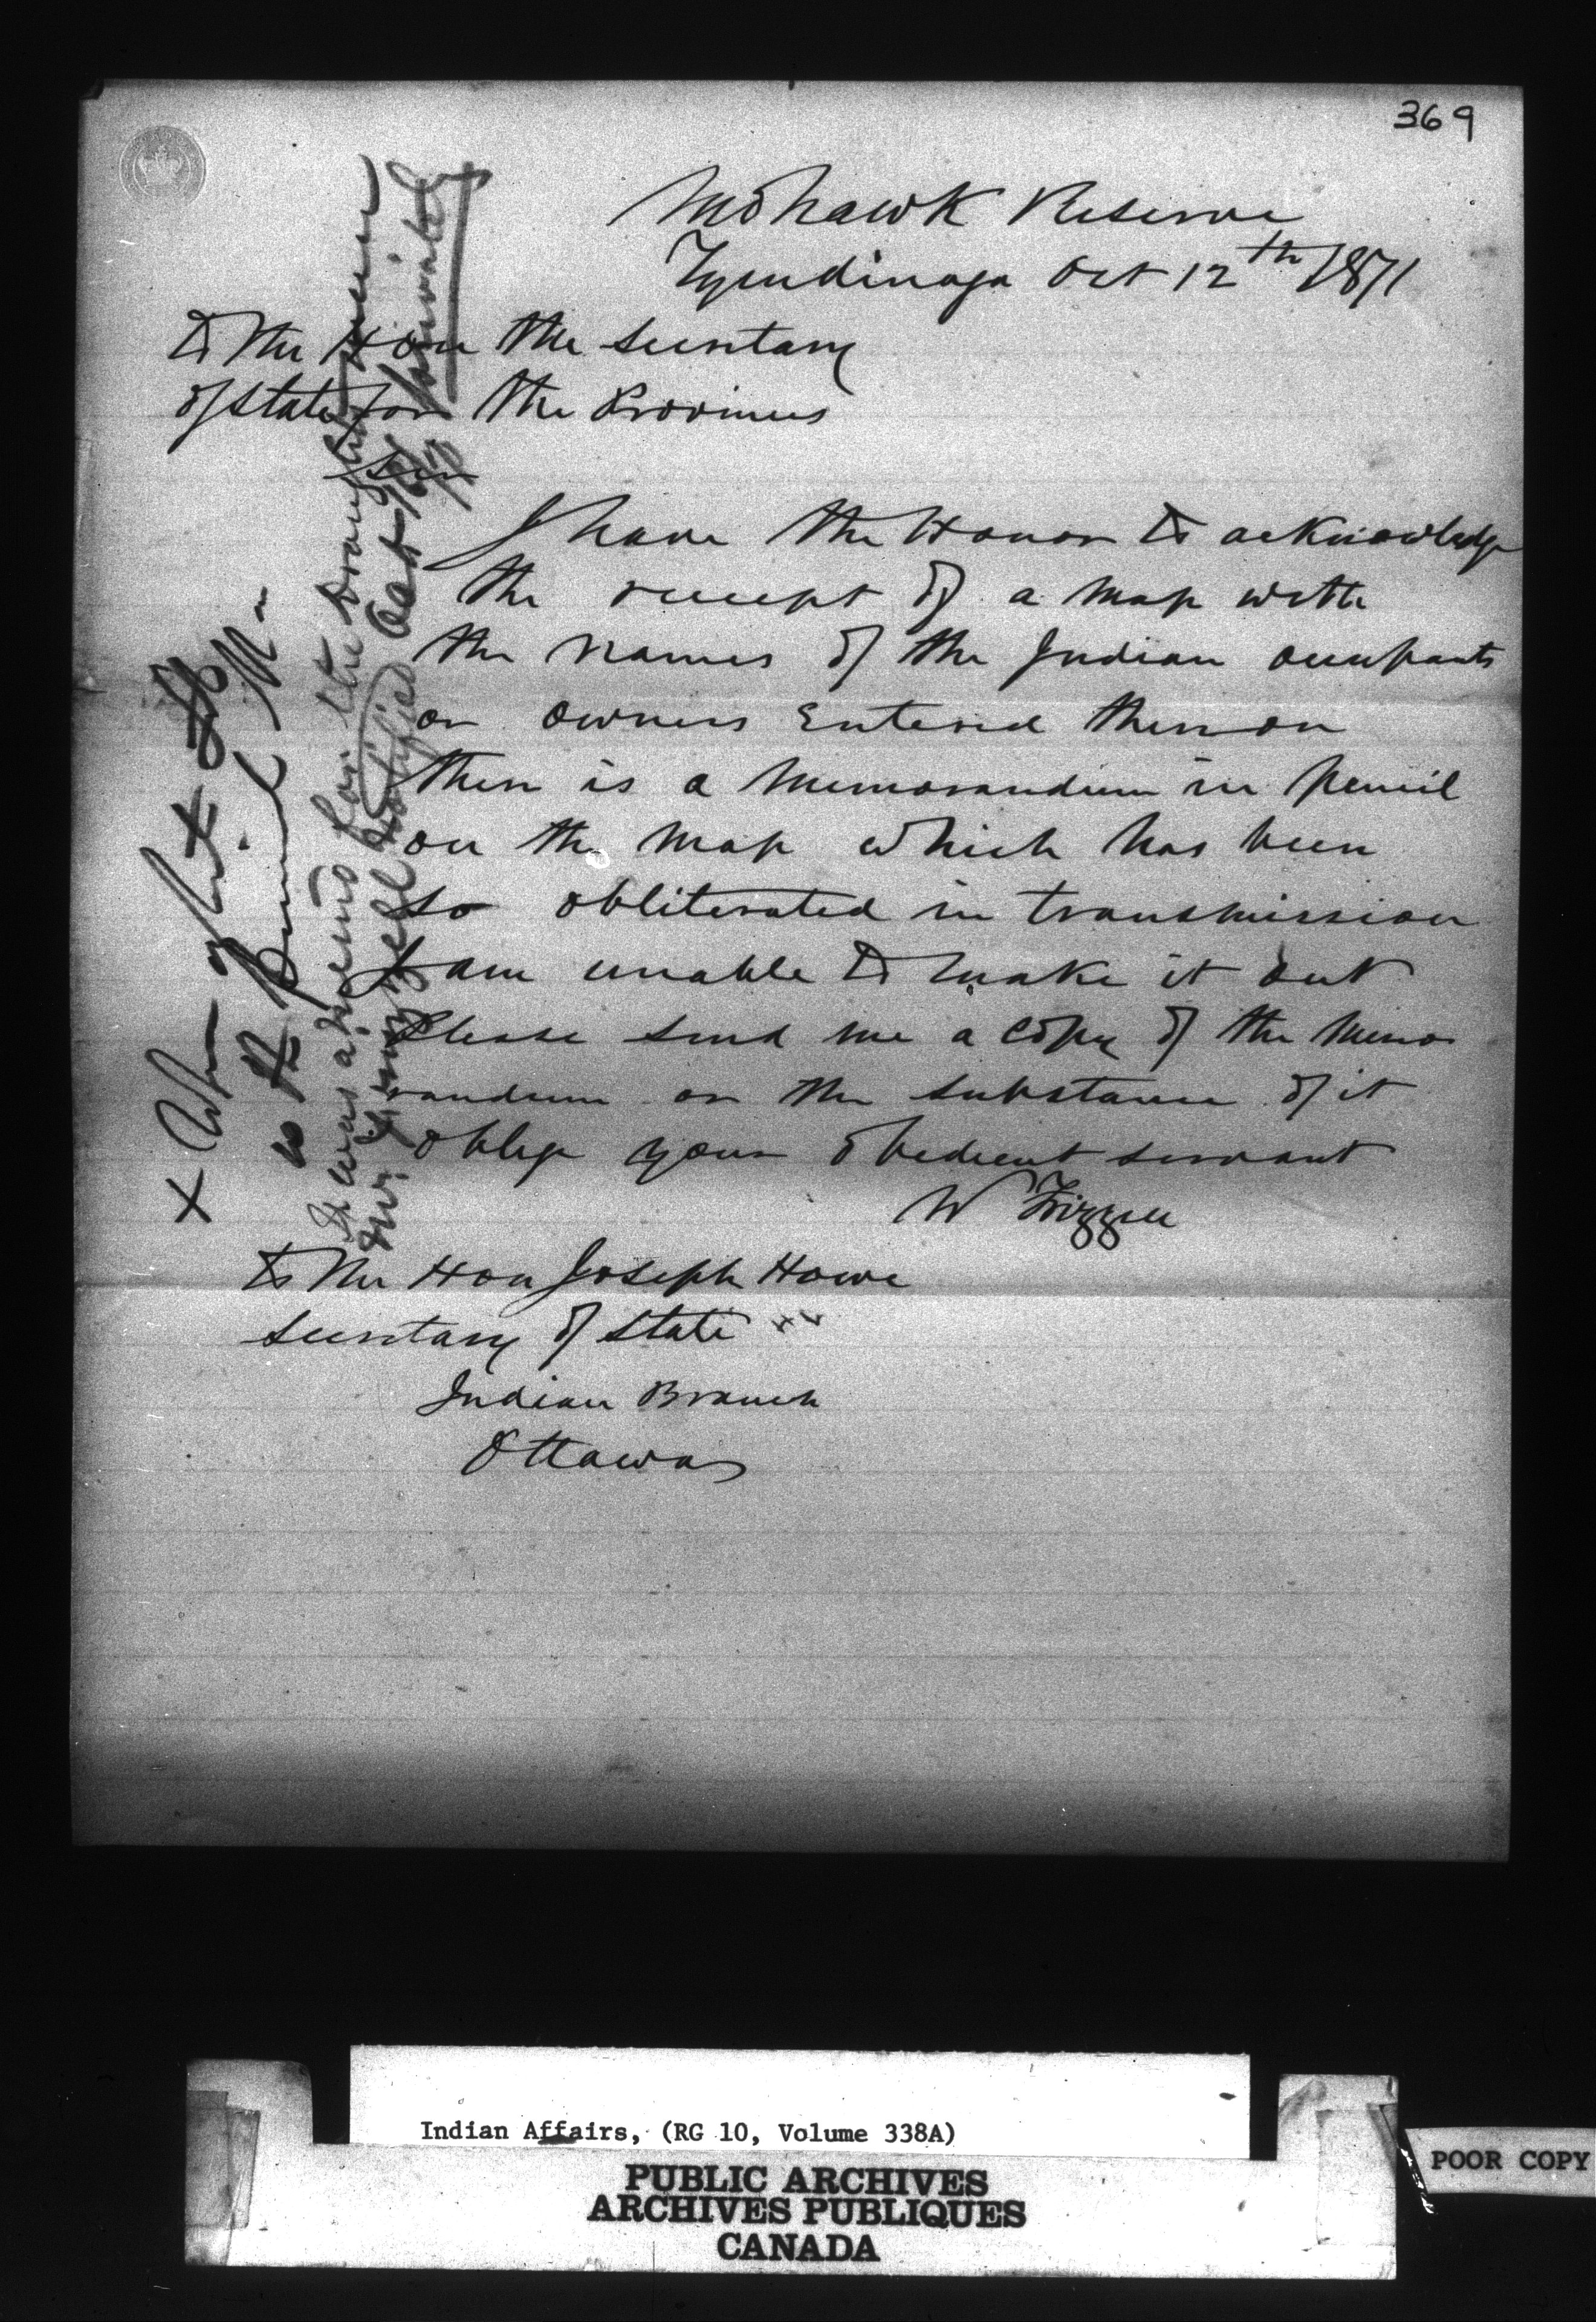 369
Mohawk Reserve
Tyendinaga Oct 12th 1871
To the Hon the Secretary
of State for the Provinces
Sir
I have the Honor to acknowledge
the receipt of a map with
the names of the Indian occupants
or owners Entered thereon
there is a Memorandum in pencil
on the map which has been
so obliterated in transmission
I am unable to make it out
Please send me a copy of the Memo
randum or the substance of it
oblige your obedient servant
W Frizzell
To the Hon Joseph Howe
Secretary of State
Indian Branch
Ottawa
x What
is the Pencil
It was a memo for the Draughtsman
Mr. Frizzell notified Oct
Indian Affairs, (RG 10, Volume 338A)
PUBLIC ARCHIVES
ARCHIVES PUBLIQUES
CANADA
POOR COPY